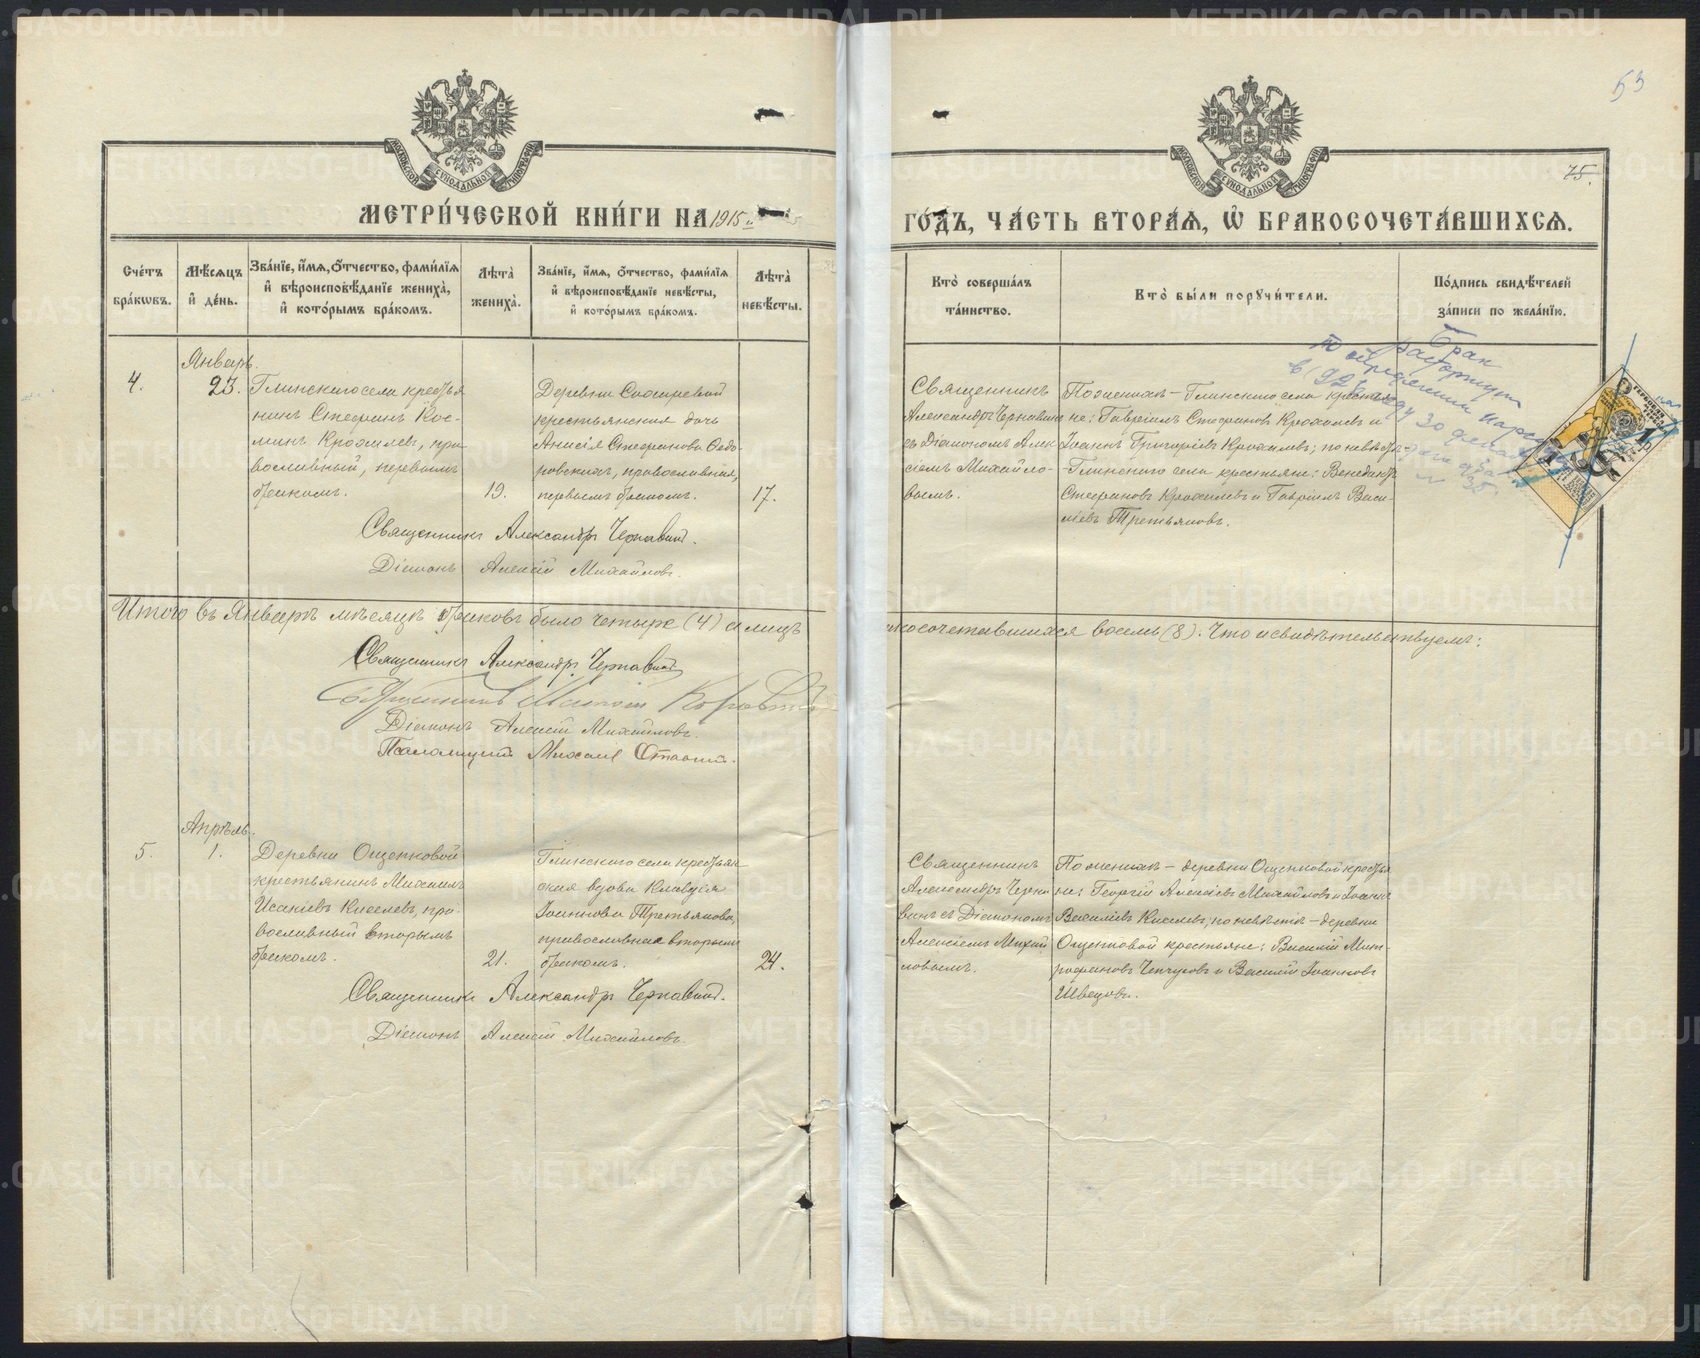 53
75.
МОСКОВСКОЙ СѴНОДАЛЬНОЙ ТИПОГРАФІИ
МОСКОВСКОЙ СѴНОДАЛЬНОЙ ТИПОГРАФІИ
МЕТРИ́ЧЕСКОЙ КНИ́ГИ НА 1915 й
ГО́ДЪ, ЧА́СТЬ ВТОРА́Я, Ѽ БРАКОСОЧЕТА́ВШИХСЯ.
Сче́тъ бра́кѡвъ.
Мѣ́сяцъ и҆ де́нь.
Зва́нїе, и҆́мя, ѻ҆́тчество, фами́лїя и҆ вѣроисповѣ́данїе жениха̀, и҆ кото́рымъ бра́комъ.
Лѣта̀ жениха̀.
Зва́нїе, и҆́мя, ѻ҆́тчество, фами́лїя и҆ вѣроисповѣ́данїе невѣ́сты, и҆ кото́рымъ бра́комъ.
Лѣта̀ невѣ́сты.
Кто̀ соверша́лъ та́инство.
Кто̀ бы́ли порꙋчи́тели.
По́дпись свидѣ́телей за́писи по жела́нїю.
Январь.
4.
23.
Глинскаго села кресть
нинъ Стефанъ Кос-
минъ Крохалевъ, пра
вославный, первымъ
бракомъ.
19.
Деревни Сохаревой
крестьянская дочь
Анисія Стефанова Ѳедо-
ровскихъ, православная,
первымъ бракомъ.
17.
Священникъ
Александръ Чернавинъ
съ діакономъ Алек
сіемъ Михайло-
вымъ.
По женихѣ – Глинскаго села крестья
не: Гавріилъ Стефановъ Крохалевъ и
Іоаннъ Григоріевъ Крохалевъ; по невѣстѣ
– Глинскаго села крестьяне: Венедиктъ
Стефановъ Крохалевъ и Гавріилъ Васи-
ліевъ Третьяковъ.
Брак
расторгнут
Священникъ Александръ Чернавинъ.
Діаконъ Алексій Михайловъ.
Итого въ Январѣ мѣсяцѣ браковъ было четыре (4) а лицъ
бракосочетавшихся восемь (8). Что и свидѣтельствуемъ:
Священникъ Александръ Чернавинъ
Священникъ
Діаконъ Алексій Михайловъ.
Псаломщикъ Михаил
Апрѣль.
5.
1.
Деревни Ощепковой
крестьянинъ Михаилъ
Исакіевъ Киселевъ, пра-
вославный вторымъ
бракомъ.
21.
Глинскаго села крестьян
ская вдова Клавдія
Іоаннова Третьякова,
православная вторымъ
бракомъ.
24.
Священникъ
Александръ Черна
винъ съ Діакономъ
Алексіемъ Михай
ловымъ.
По женихѣ – деревни Ощепковой крестья
не: Георгій Алексіевъ Михайловъ и Іоаннъ
Василіевъ Киселевъ, по невѣстѣ – деревни
Ощепковой крестьяне: Василій Мит-
рофановъ Чепчуговъ и Василій Іоанновъ
Швецовъ.
Священникъ Александръ Чернавинъ.
Діаконъ Алексій Михайловъ.
METRIKI.GASO-URAL.RU